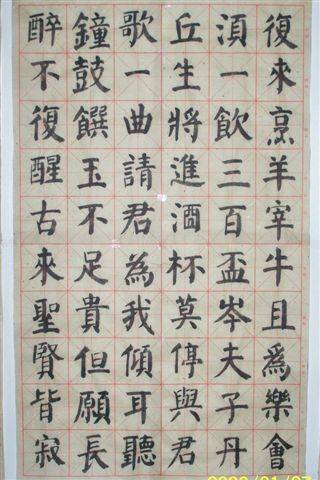 復來烹羊宰牛且為樂會
湏一飲三百盃岑夫子丹
丘生將進酒杯莫停與君
歌一曲請君為我傾耳聽
鐘鼓饌玉不足貴但願長
醉不復醒古來聖賢皆寂